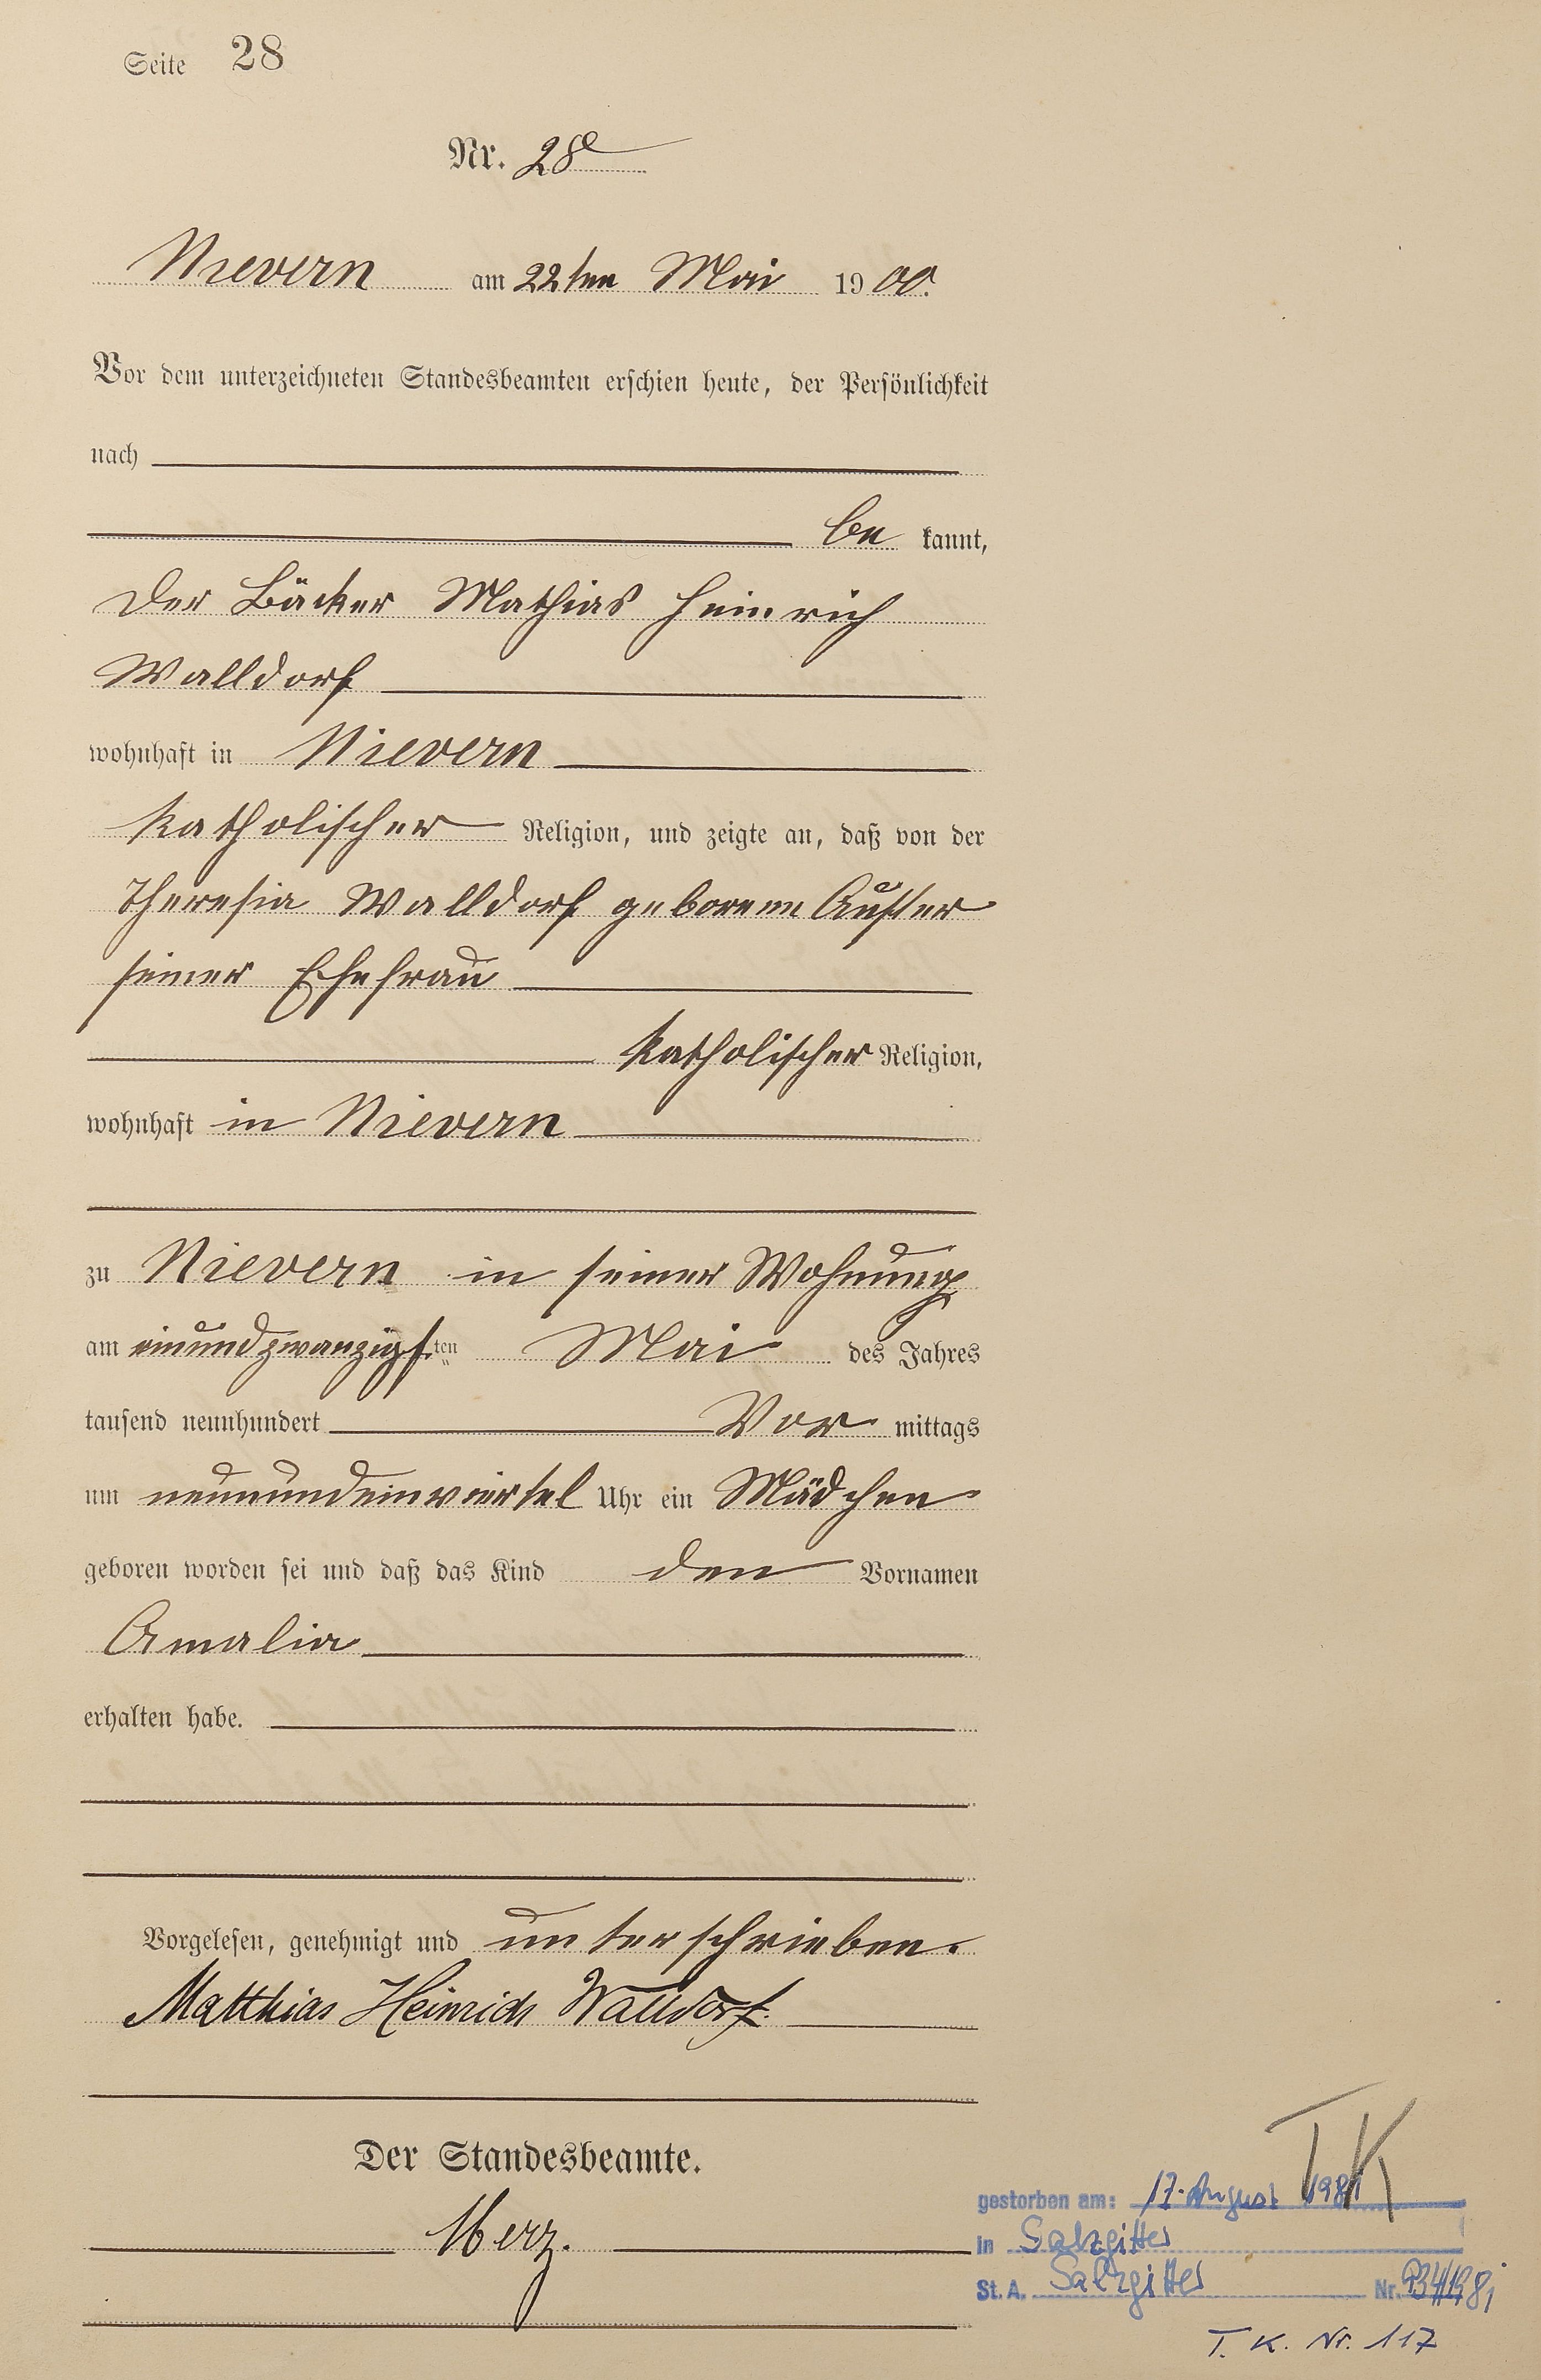 Seite 28
Nr. 28
Nievern am 22ten Mai 1900.
Vor dem unterzeichneten Standesbeamten erschien heute, der Persönlichkeit
nach
be kannt,
der Bäcker Mathias Heinrich
Walldorf
wohnhaft in Nievern
katholischer Religion, und zeigte an, daß von der
Theresia Walldorf geborenen Auster
seiner Ehefrau
katholischer Religion,
wohnhaft in Nievern
zu Nievern in seiner Wohnung
am einundzwanzigsten Mai des Jahres
tausend neunhundert Vor mittags
um neunundeinviertel Uhr ein Mädchen
geboren worden sei und daß das Kind den Vornamen
Amalia
erhalten habe.
Vorgelesen, genehmigt und unterschrieben.
Matthias Heinrich Walldorf.
Der Standesbeamte.
Merz.
TK
gestorben am: 17. August 1981
in Salzgitter
St. A. Salzgitter Nr. 934/1981
T. K. Nr. 117